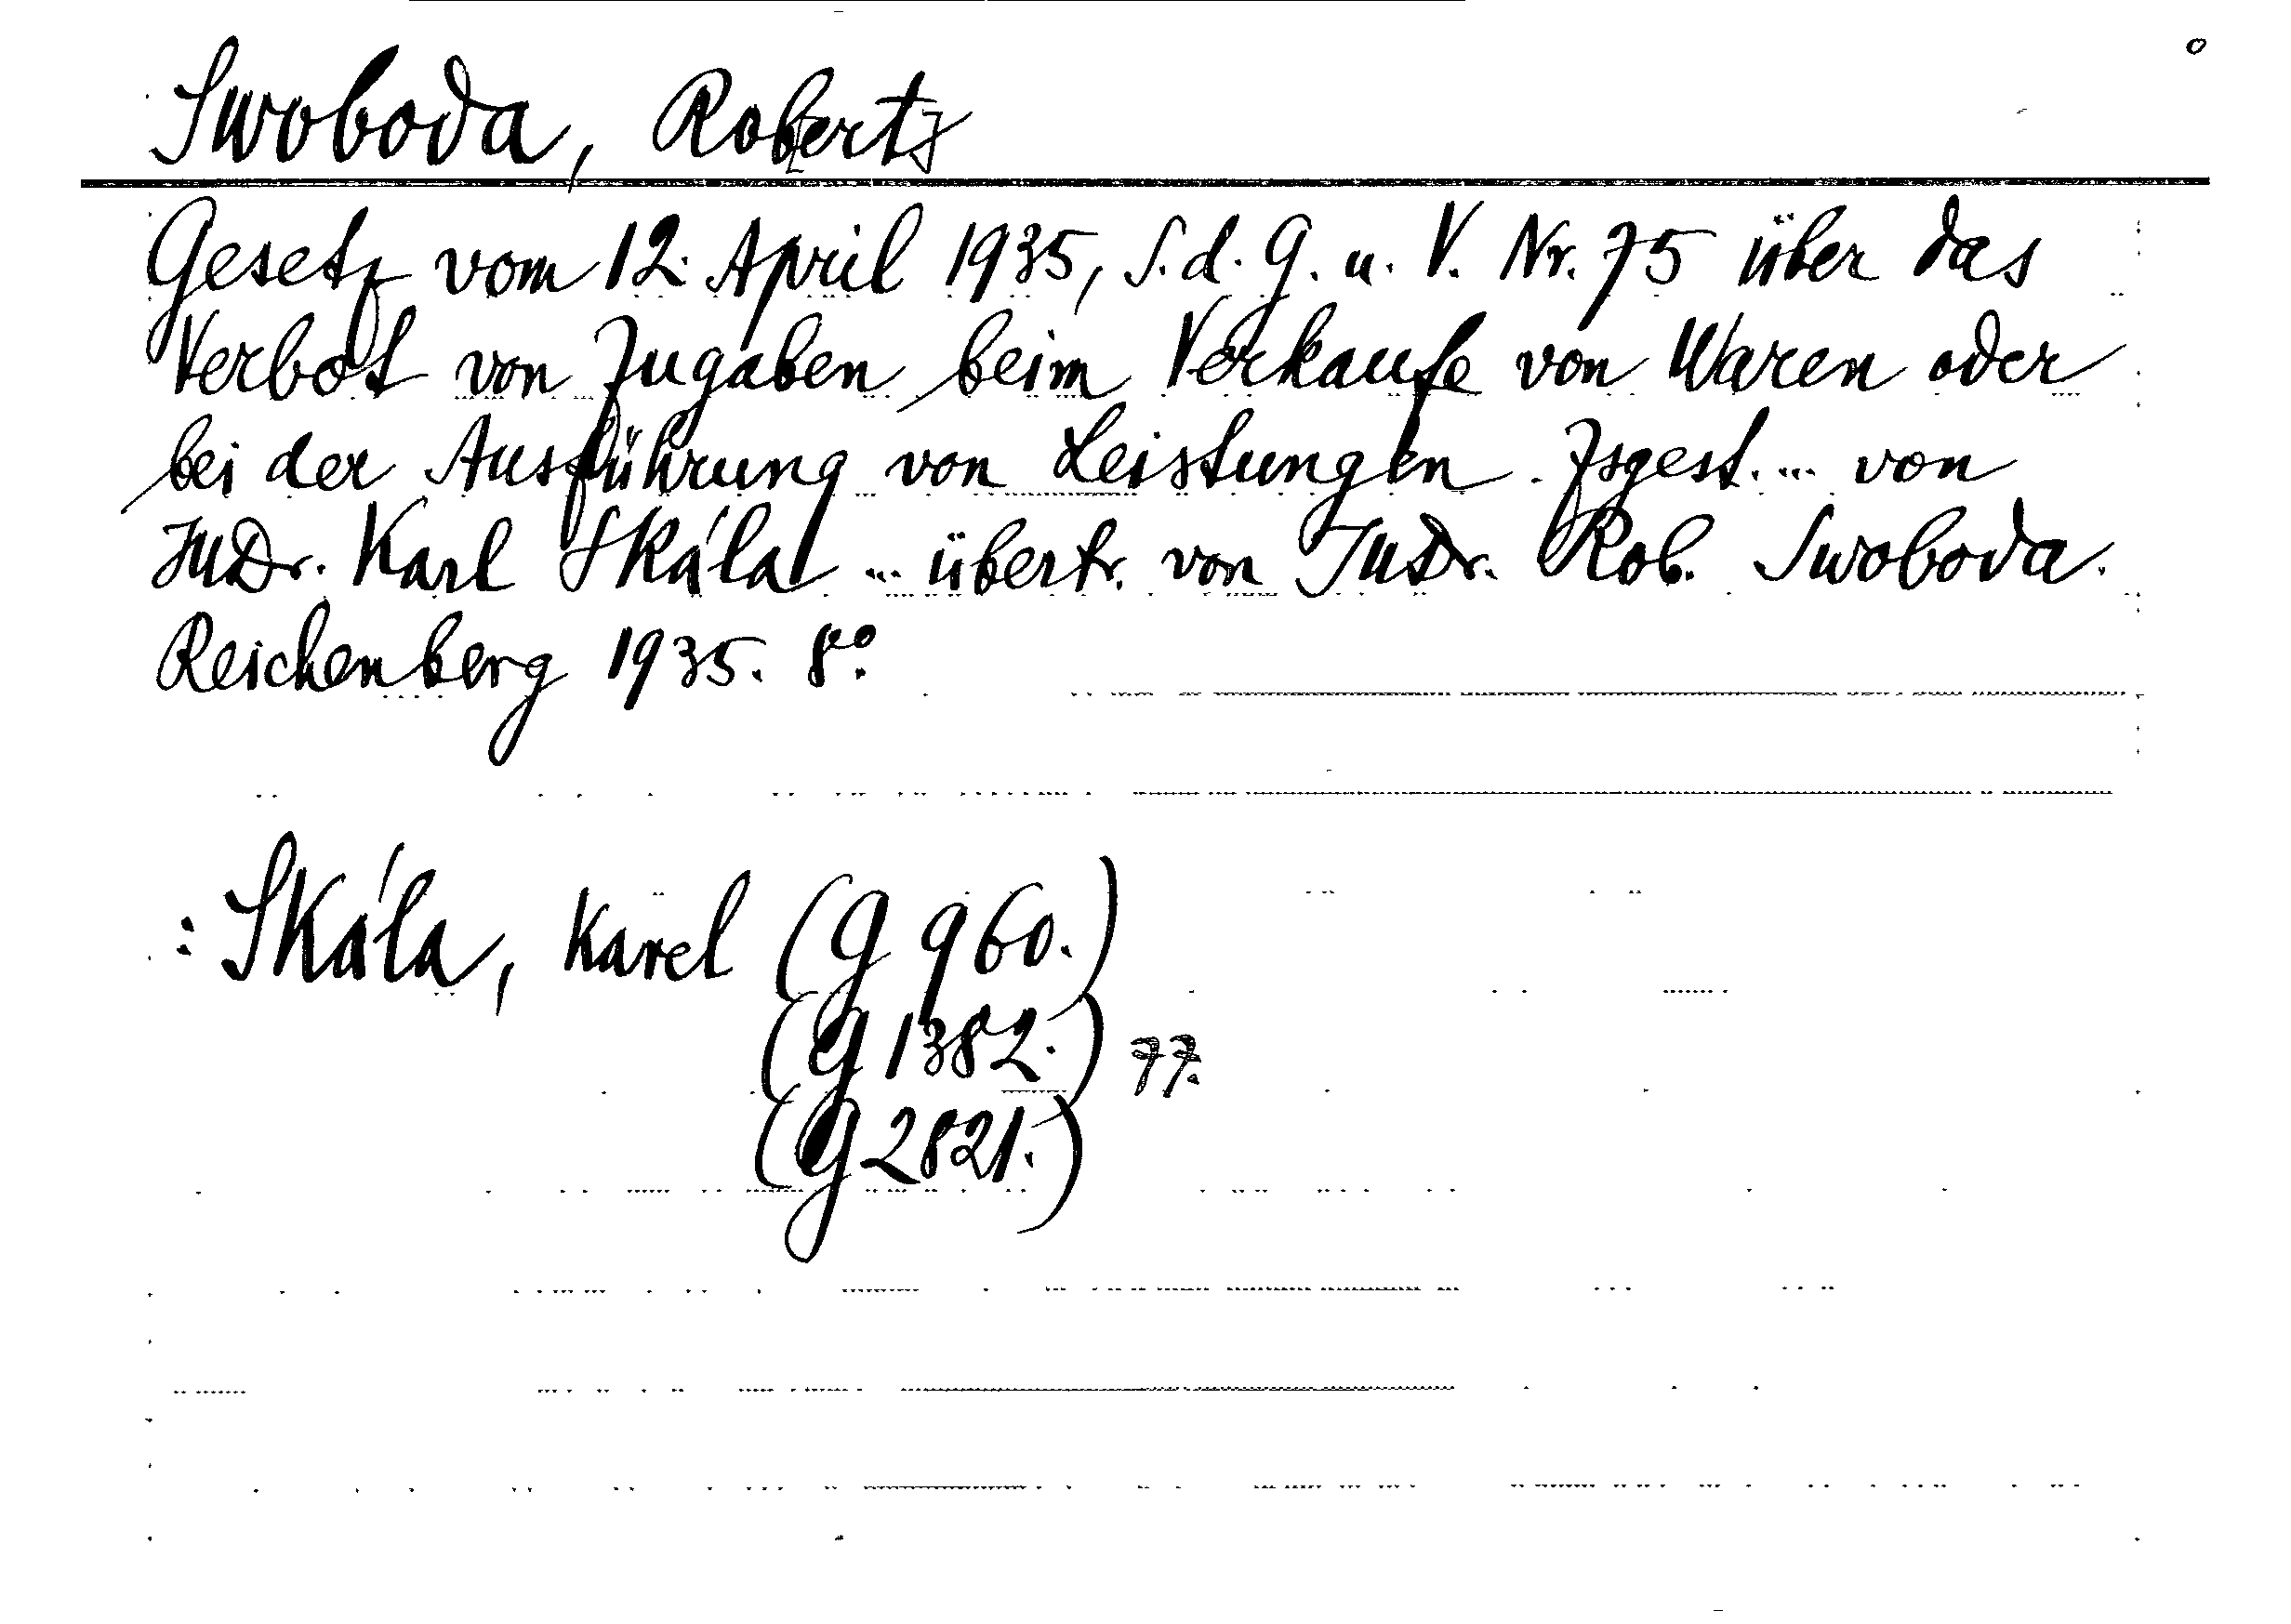 Swoboda, Rob[ert]
Gesetz vom 12. April 1935, S. d. G. u. V. Nr. 75 über das
Verbot von Zugaben beim Verkaufe von Waren oder
bei der Ausführung von Leistungen. Zsgest. ... von
JuDr. Karl Skála ... übertr. von JuDr. Rob. Swoboda.
Reichenberg 1935. 8°.
: Skála, Karel (G 960.)
(G 1382.) 77.
(G 2821.)